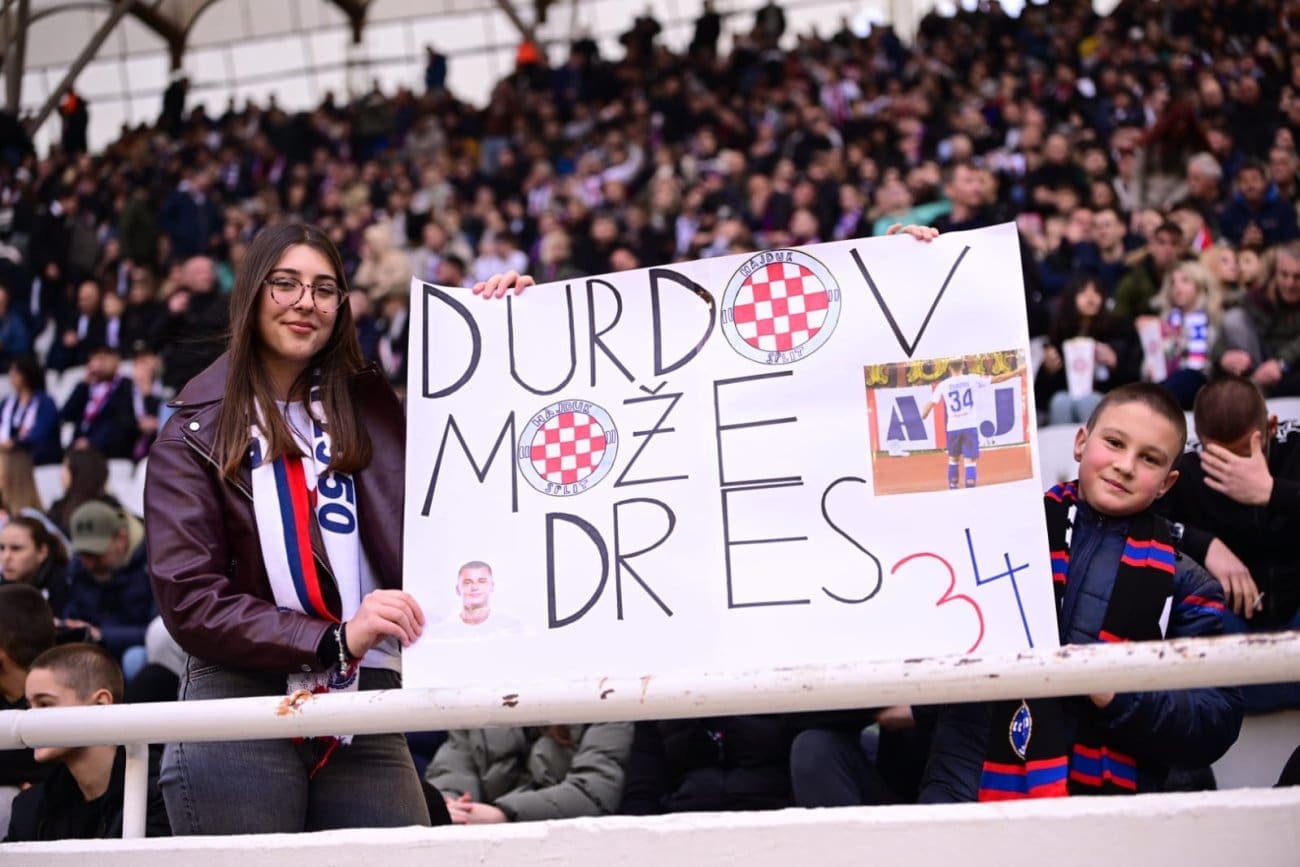 DURDOV
MOŽE
DRES
34
HAJDUK
SPLIT
HAJDUK
SPLIT
34
A J
1950